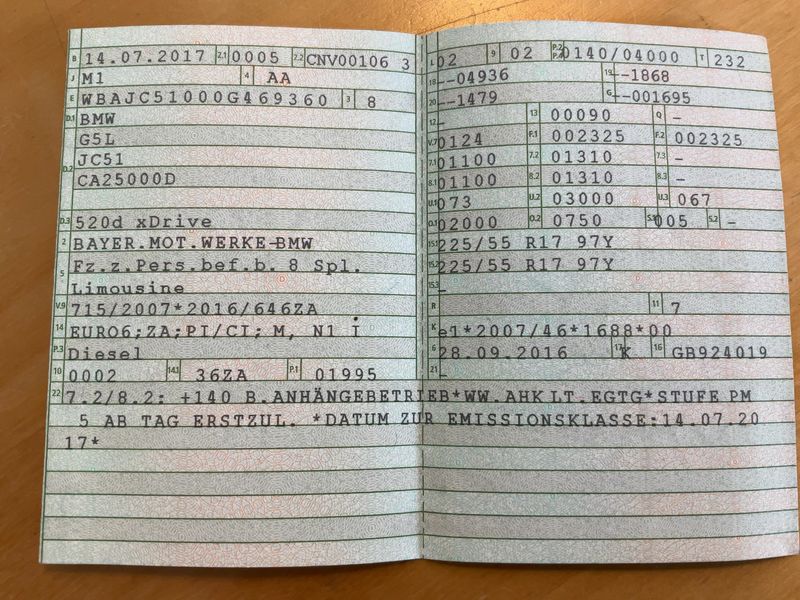 B 14.07.2017 2.1 0005 2.2 CNV00106 3
J M1 4 AA
E WBAJC51000G469360 3 8
D.1 BMW
G5L
D.2 JC51
CA25000D
D.3 520d xDrive
2 BAYER.MOT.WERKE-BMW
5 Fz.z.Pers.bef.b. 8 Spl.
Limousine
V.9 715/2007*2016/646ZA
14 EURO6;ZA;PI/CI; M, N1 I
P.3 Diesel
10 0002 14.1 36ZA P.1 01995
L 02 9 02 P.2 P.4 0140/04000 T 232
18 --04936 19 --1868
20 --1479 G --001695
12 - 13 00090 Q -
V.7 0124 F.1 002325 F.2 002325
7.1 01100 7.2 01310 7.3 -
8.1 01100 8.2 01310 8.3 -
U.1 073 U.2 03000 U.3 067
O.1 02000 O.2 0750 S.1 005 S.2 -
15.1 225/55 R17 97Y
15.2 225/55 R17 97Y
15.3 -
R 11 7
K e1*2007/46*1688*00
6 28.09.2016 17 K 16 GB924019
21 -
22 7.2/8.2: +140 B.ANHÄNGEBETRIEB*WW.AHK LT.EGTG*STUFE PM
5 AB TAG ERSTZUL. *DATUM ZUR EMISSIONSKLASSE:14.07.20
17*